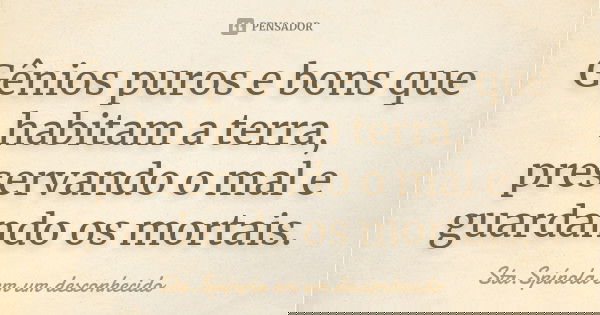 PENSADOR
Gênios puros e bons que
habitam a terra,
preservando o mal e
guardando os mortais.
Sta. Spínola em um desconhecido